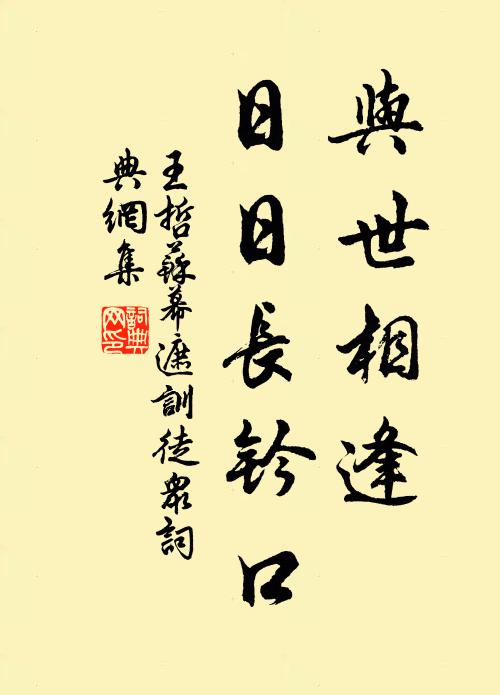 與世相逢
日日長鈐口
王哲蘇幕遮訓徒衆詞
典網集
詞典網印